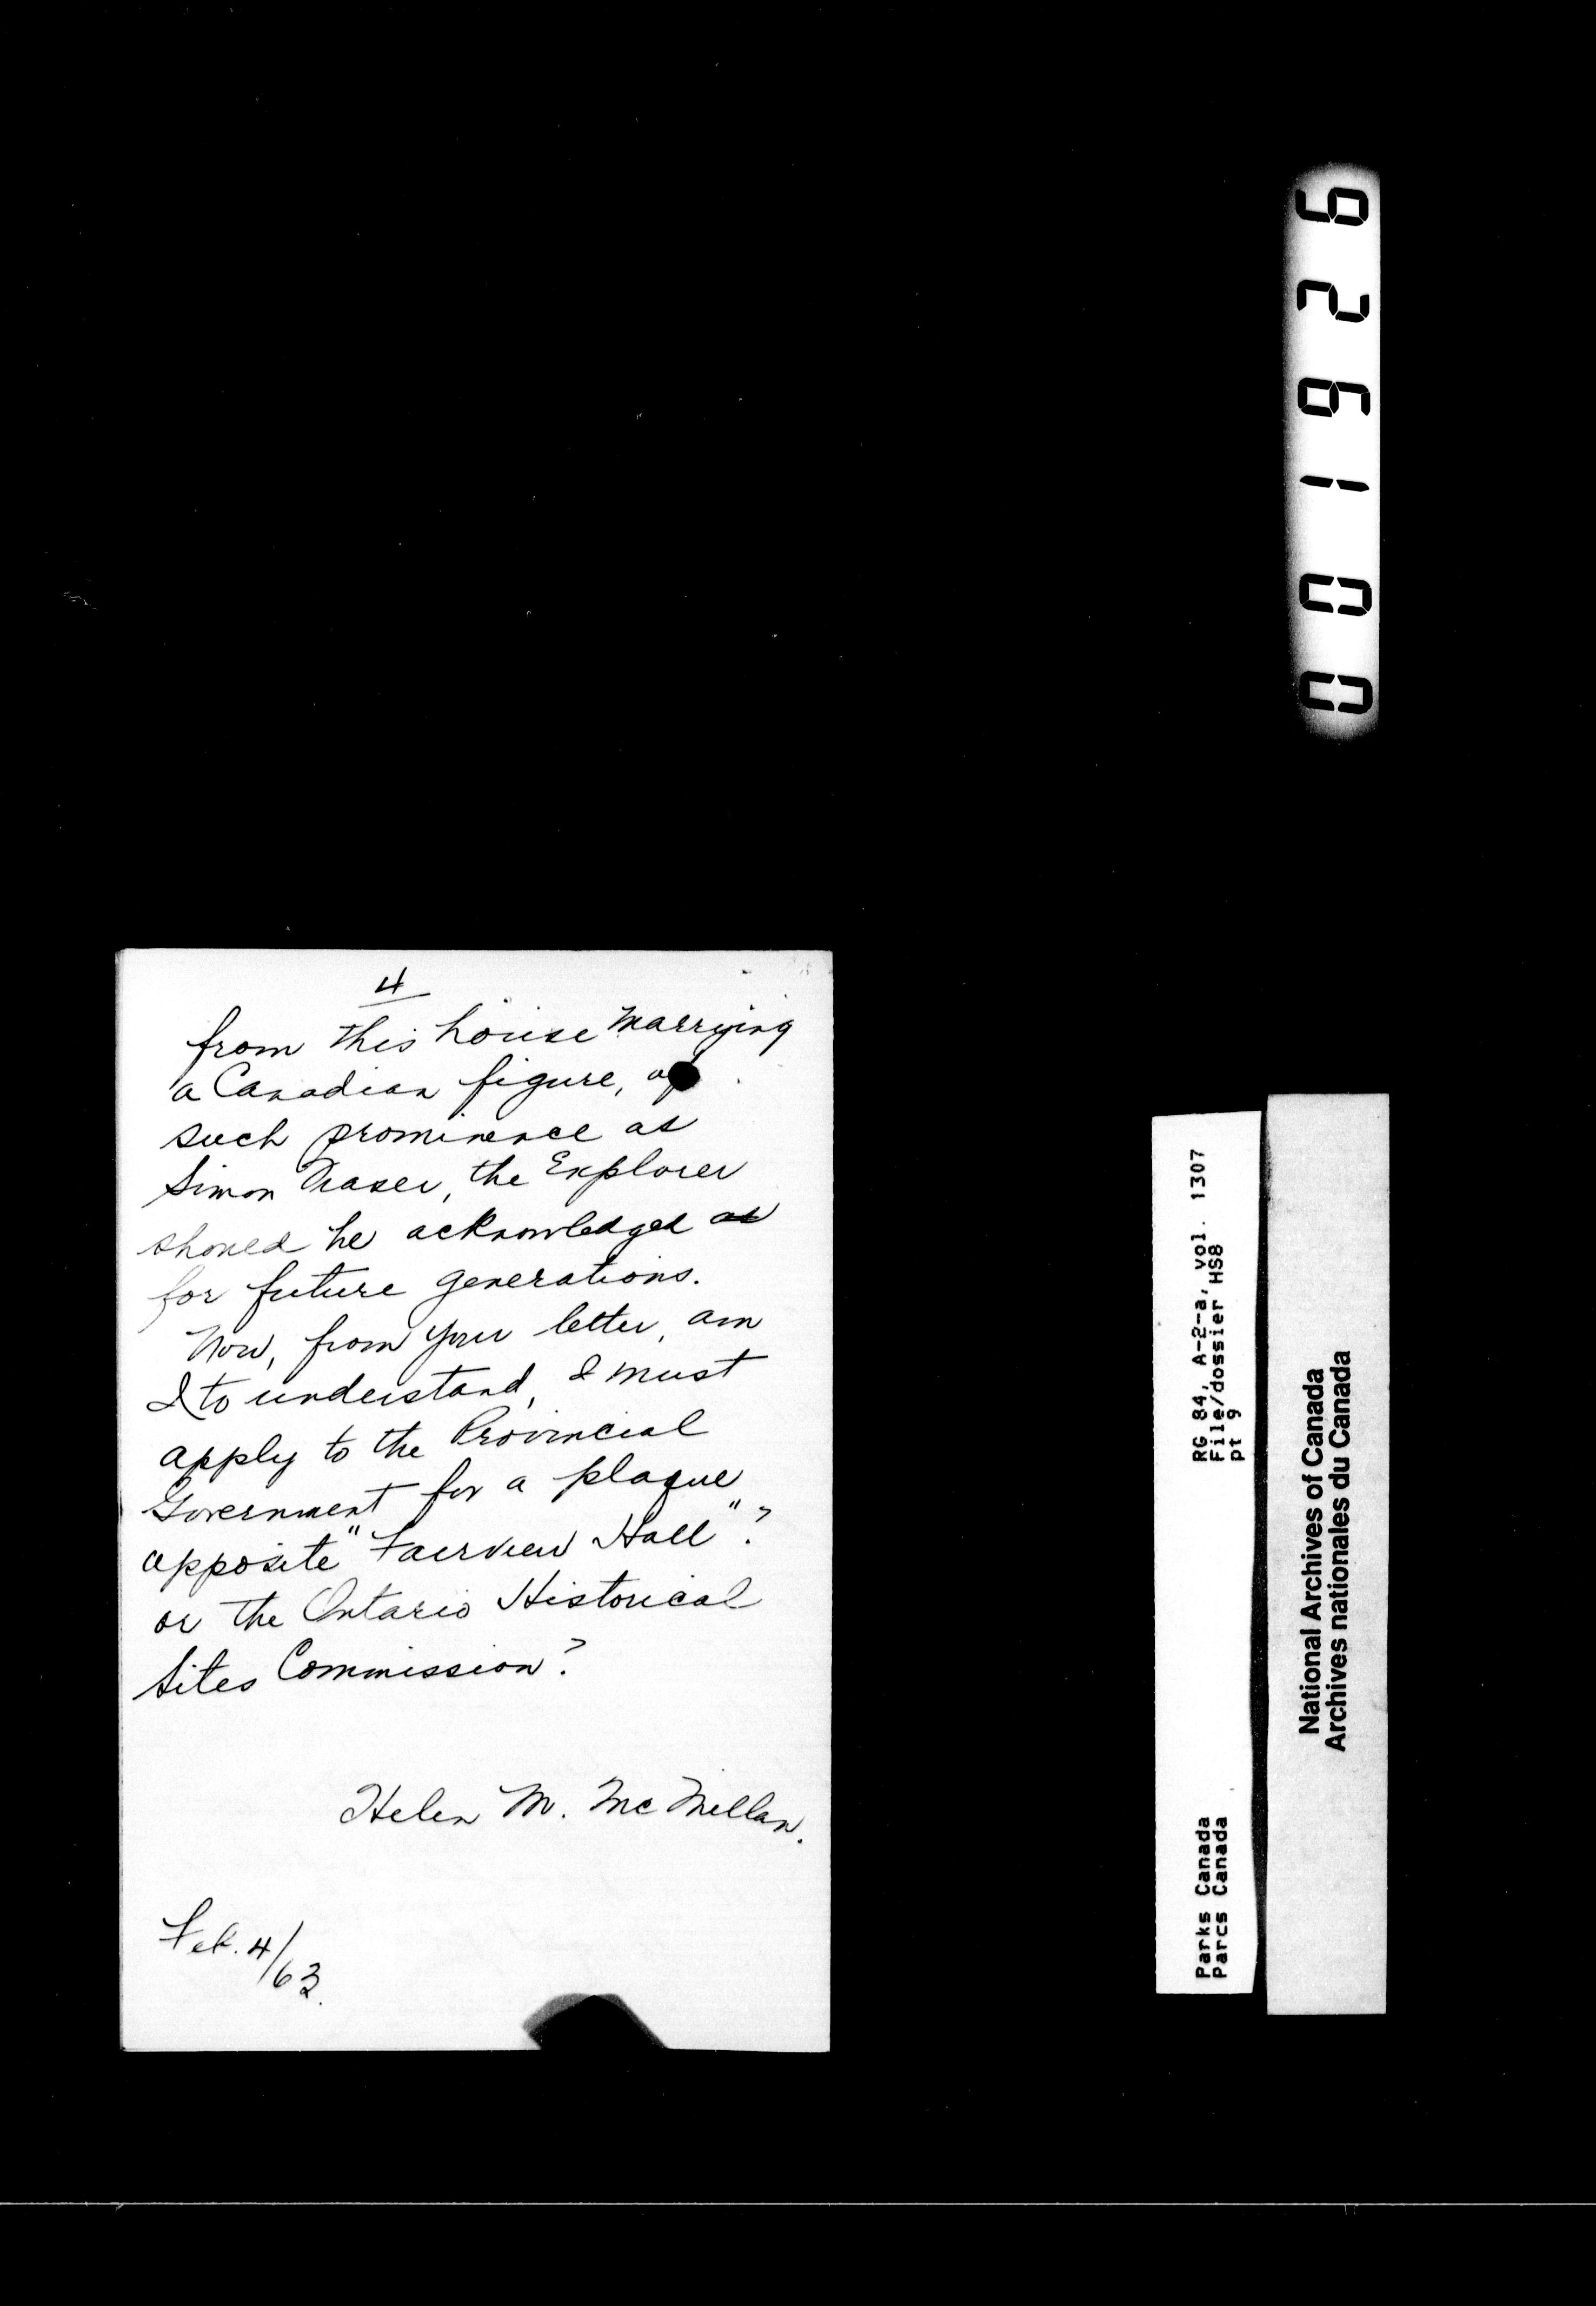 4
from this house marrying
a Canadian figure, of
such prominence as
Simon Fraser, the Explorer
should be acknowledged as
for future generations.
Now, from your letter, am
I to understand, I must
apply to the Provincial
Government for a plaque
opposite "Fairview Hall"?
or the Ontario Historical
Sites Commission?
Helen M. McMillan.
Feb. 4/63.
001629
RG 84, A-2-a, vol. 1307
File/dossier HS8
pt 9
Parks Canada
Parcs Canada
National Archives of Canada
Archives nationales du Canada